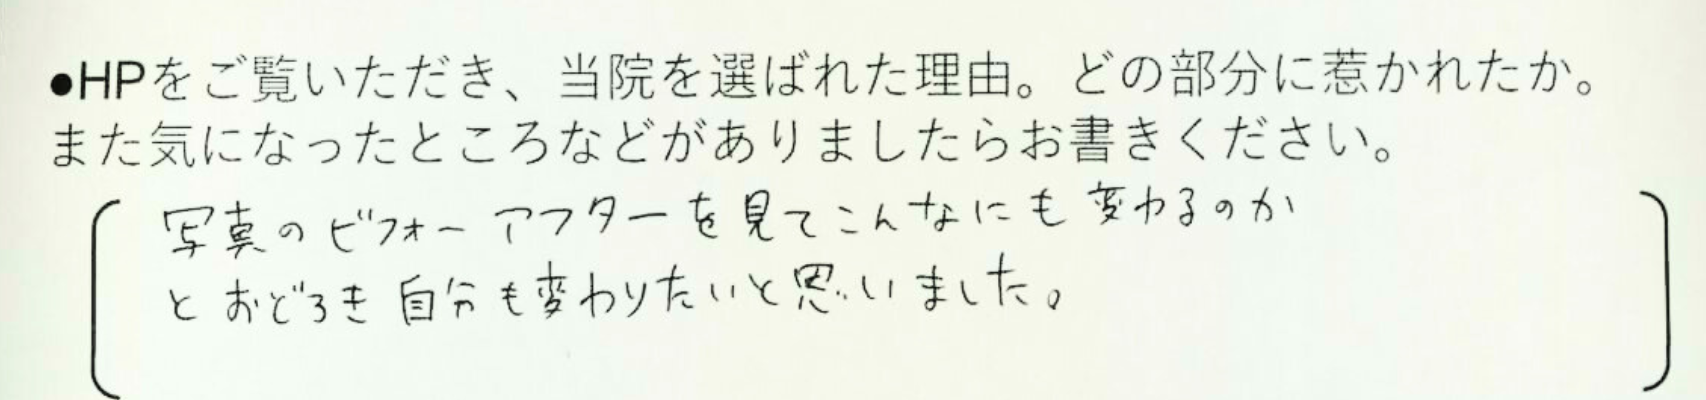 ●HPをご覧いただき、当院を選ばれた理由。どの部分に惹かれたか。
また気になったところなどがありましたらお書きください。
写真のビフォーアフターを見てこんなにも変わるのか
とおどろき自分も変わりたいと思いました。